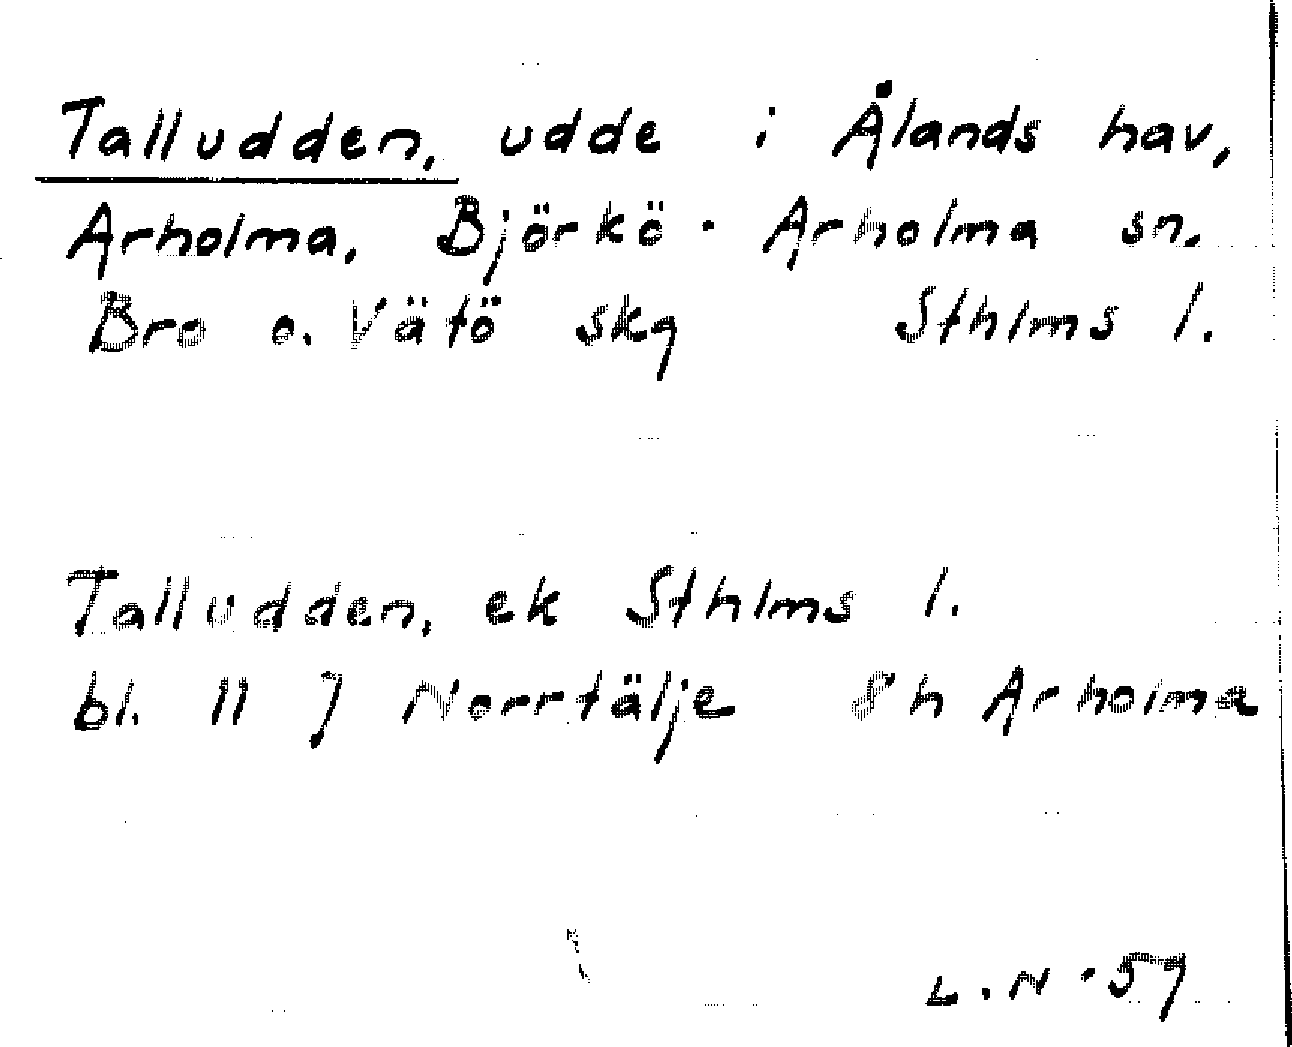 Talludden, udde i Ålands hav,
Arholma, Björkö-Arholma sn.
Bro o. Vätö skg Sthlms l.
Talludden, ek Sthlms l.
bl. 11 J Norrtälje 8h Arholma
L.N.-57